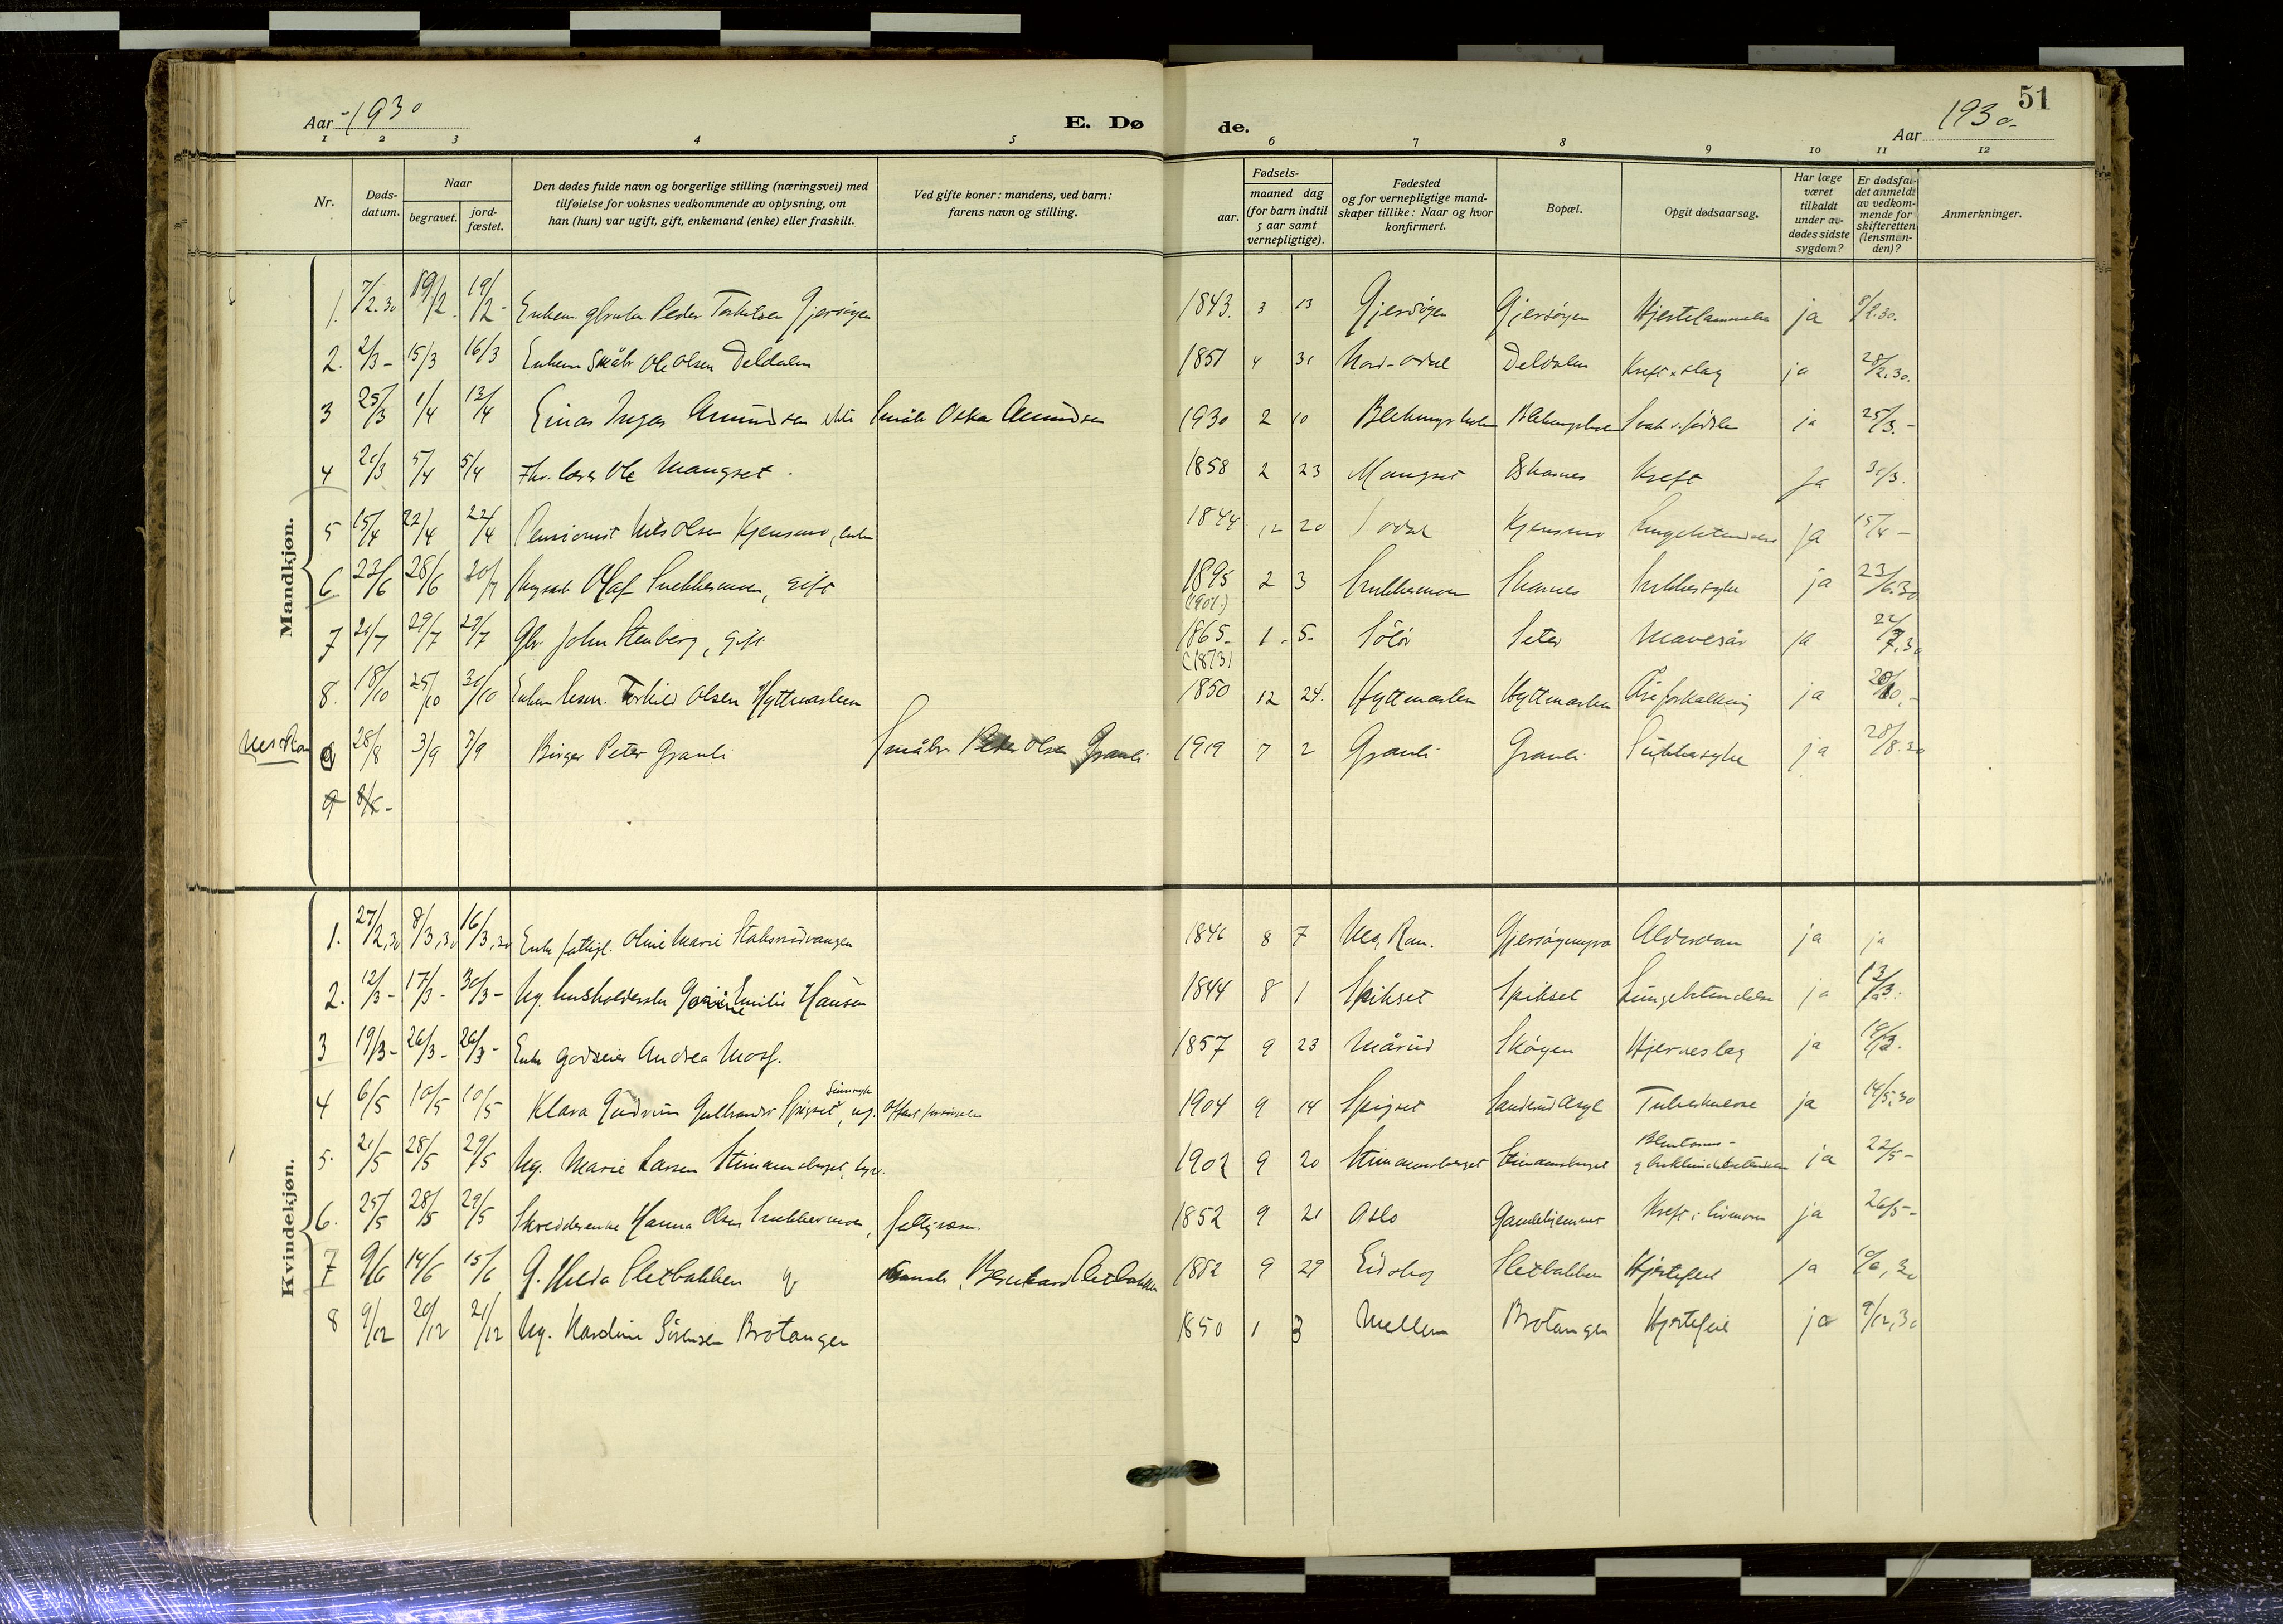 51
Aar 1930
E. Dø
de.
Aar 1930.
1 2 3 4 5 6 7 8 9 10 11 12
Nr.
Døds-
datum.
Naar
begravet.
jord-
fæstet.
Den dødes fulde navn og borgerlige stilling (næringsvei) med
tilføielse for voksnes vedkommende av oplysning, om
han (hun) var ugift, gift, enkemand (enke) eller fraskilt.
Ved gifte koner: mandens, ved barn:
farens navn og stilling.
Fødsels-
aar.
maaned dag
(for barn indtil
5 aar samt
vernepligtige).
Fødested
og for vernepligtige mand-
skaper tillike: Naar og hvor
konfirmert.
Bopæl.
Opgit dødsaarsag.
Har læge
været
tilkaldt
under av-
dødes sidste
sygdom?
Er dødsfal-
det anmeldt
av vedkom-
mende for
skifteretten
(lensman-
den)?
Anmerkninger.
Mandkjøn.
1. 7/2.30 19/2. 19/2- Enkem. Peder Gjersøyen 1843. 3 13 Gjersøyen Gjersøyen Hjertelammelse ja 8/2.30.
2. 2/3- 15/3 16/3 Enkem Småbr Ole Olsen Deldalen 1851 4 31 Nord-Odal Deldalen Kreft & slag ja 28/2.30.
3 25/3 1/4 13/4 Einar Ingar Amundsen Småbr Oskar Amundsen 1930 2 10 Svak v. fødsle ja 25/3.-
4 21/3 5/4 5/4 Ole Mangset. 1858 2 23 Mangset Kreft Ja 31/3.
5 15/4 22/4 22/4 Pensionist Nils Olsen Kjensmo, enkm 1844 12 20 Odal Kjensmo Lungebetendelse ja 15/4-
6 23/6 28/6 20/7 Olaf Snekkermoen, gift 1895 (1901.) 2 3 Snekkermoen Skarnes Sukkersyke ja 23/6.30
7 21/7 29/7 29/7 Gbr John Stenberg, gift 1865- (1873) 1- 5- Solør Seter Mavesår ja 22/7.30
8. 18/10 25/10 30/10 Enkem Torkild Olsen Hyttmarken 1850 12 24. Hyttmarken Hyttmarken Åreforkalkning ja 20/10.-
9 28/8 3/9 7/9 Birger Peter Granli Småbr Peter Olsen Granli 1919 7 2 Granli Granli Sukkersyke ja 28/8.30
9 8/5-
Kvindekjøn.
1. 27/2,30 8/3,30 16/3,30 Enke fattigl. Oline Marie 1846 8 7 Alderdom ja ja
2. 12/3- 17/3- 30/3- Ug. husholderske Emilie Hansen 1844 8 1 Spikset Spikset Lungebetendelse ja 13/3.
3 19/3- 26/3- 26/3- Enke godseier Andrea Mosf. 1857 9 23 Mårud Skøyen Hjerneslag ja 19/3.
4 6/5 10/5 10/5 Klara Gudrun Spigset, ug. Sinnsyk 1904 9 14 Spigset Sanderud Asyl Tuberkulose ja 14/5.30
5. 21/5 28/5 29/5 Ug. Marie Larsen 1902 9 20 ja 22/5-
6. 25/5 28/5 29/5 Skredderenke Hanna Olsen Snekkermoen, fattigvæsen. 1852 9 21 Oslo Gamlehjemmet Kreft i livmoren ja 26/5-
7 9/6 14/6 15/6 G. Hilda Sletbakken g Bernhard Sletbakken 1852 9 29 Eidskog Sletbakken Hjertefeil ja 10/6,30
8 9/12 20/12 21/12 Ug. Karoline Sørensen Brotangen 1850 1 3 Mellem Brotangen Hjertefeil ja 9/12,30